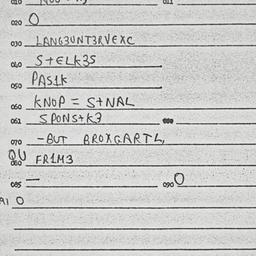 020 O
030 LANG3UNT3RVEXC
040 S+ELK3S
050 PAS1K
060 KNOP = S+NAL
061 SPONS+K3
070 -BUT BROXGARTL,
QU FR1M3
085 — 090 O
AI O